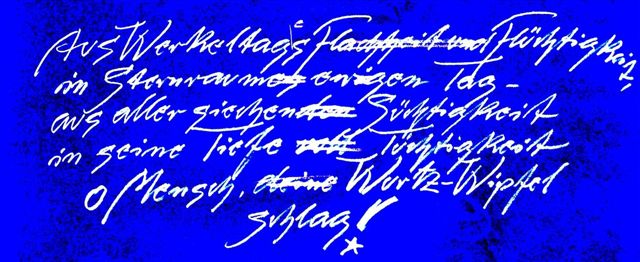 Aus Werkeltags Flachheit und Flüchtigkeit,
in Sternraumes ewigen Tag -
aus aller siechenden Süchtigkeit
in seine Tiefe voll Tüchtigkeit
o Mensch, deine Wurtz-Wipfel
schlag!